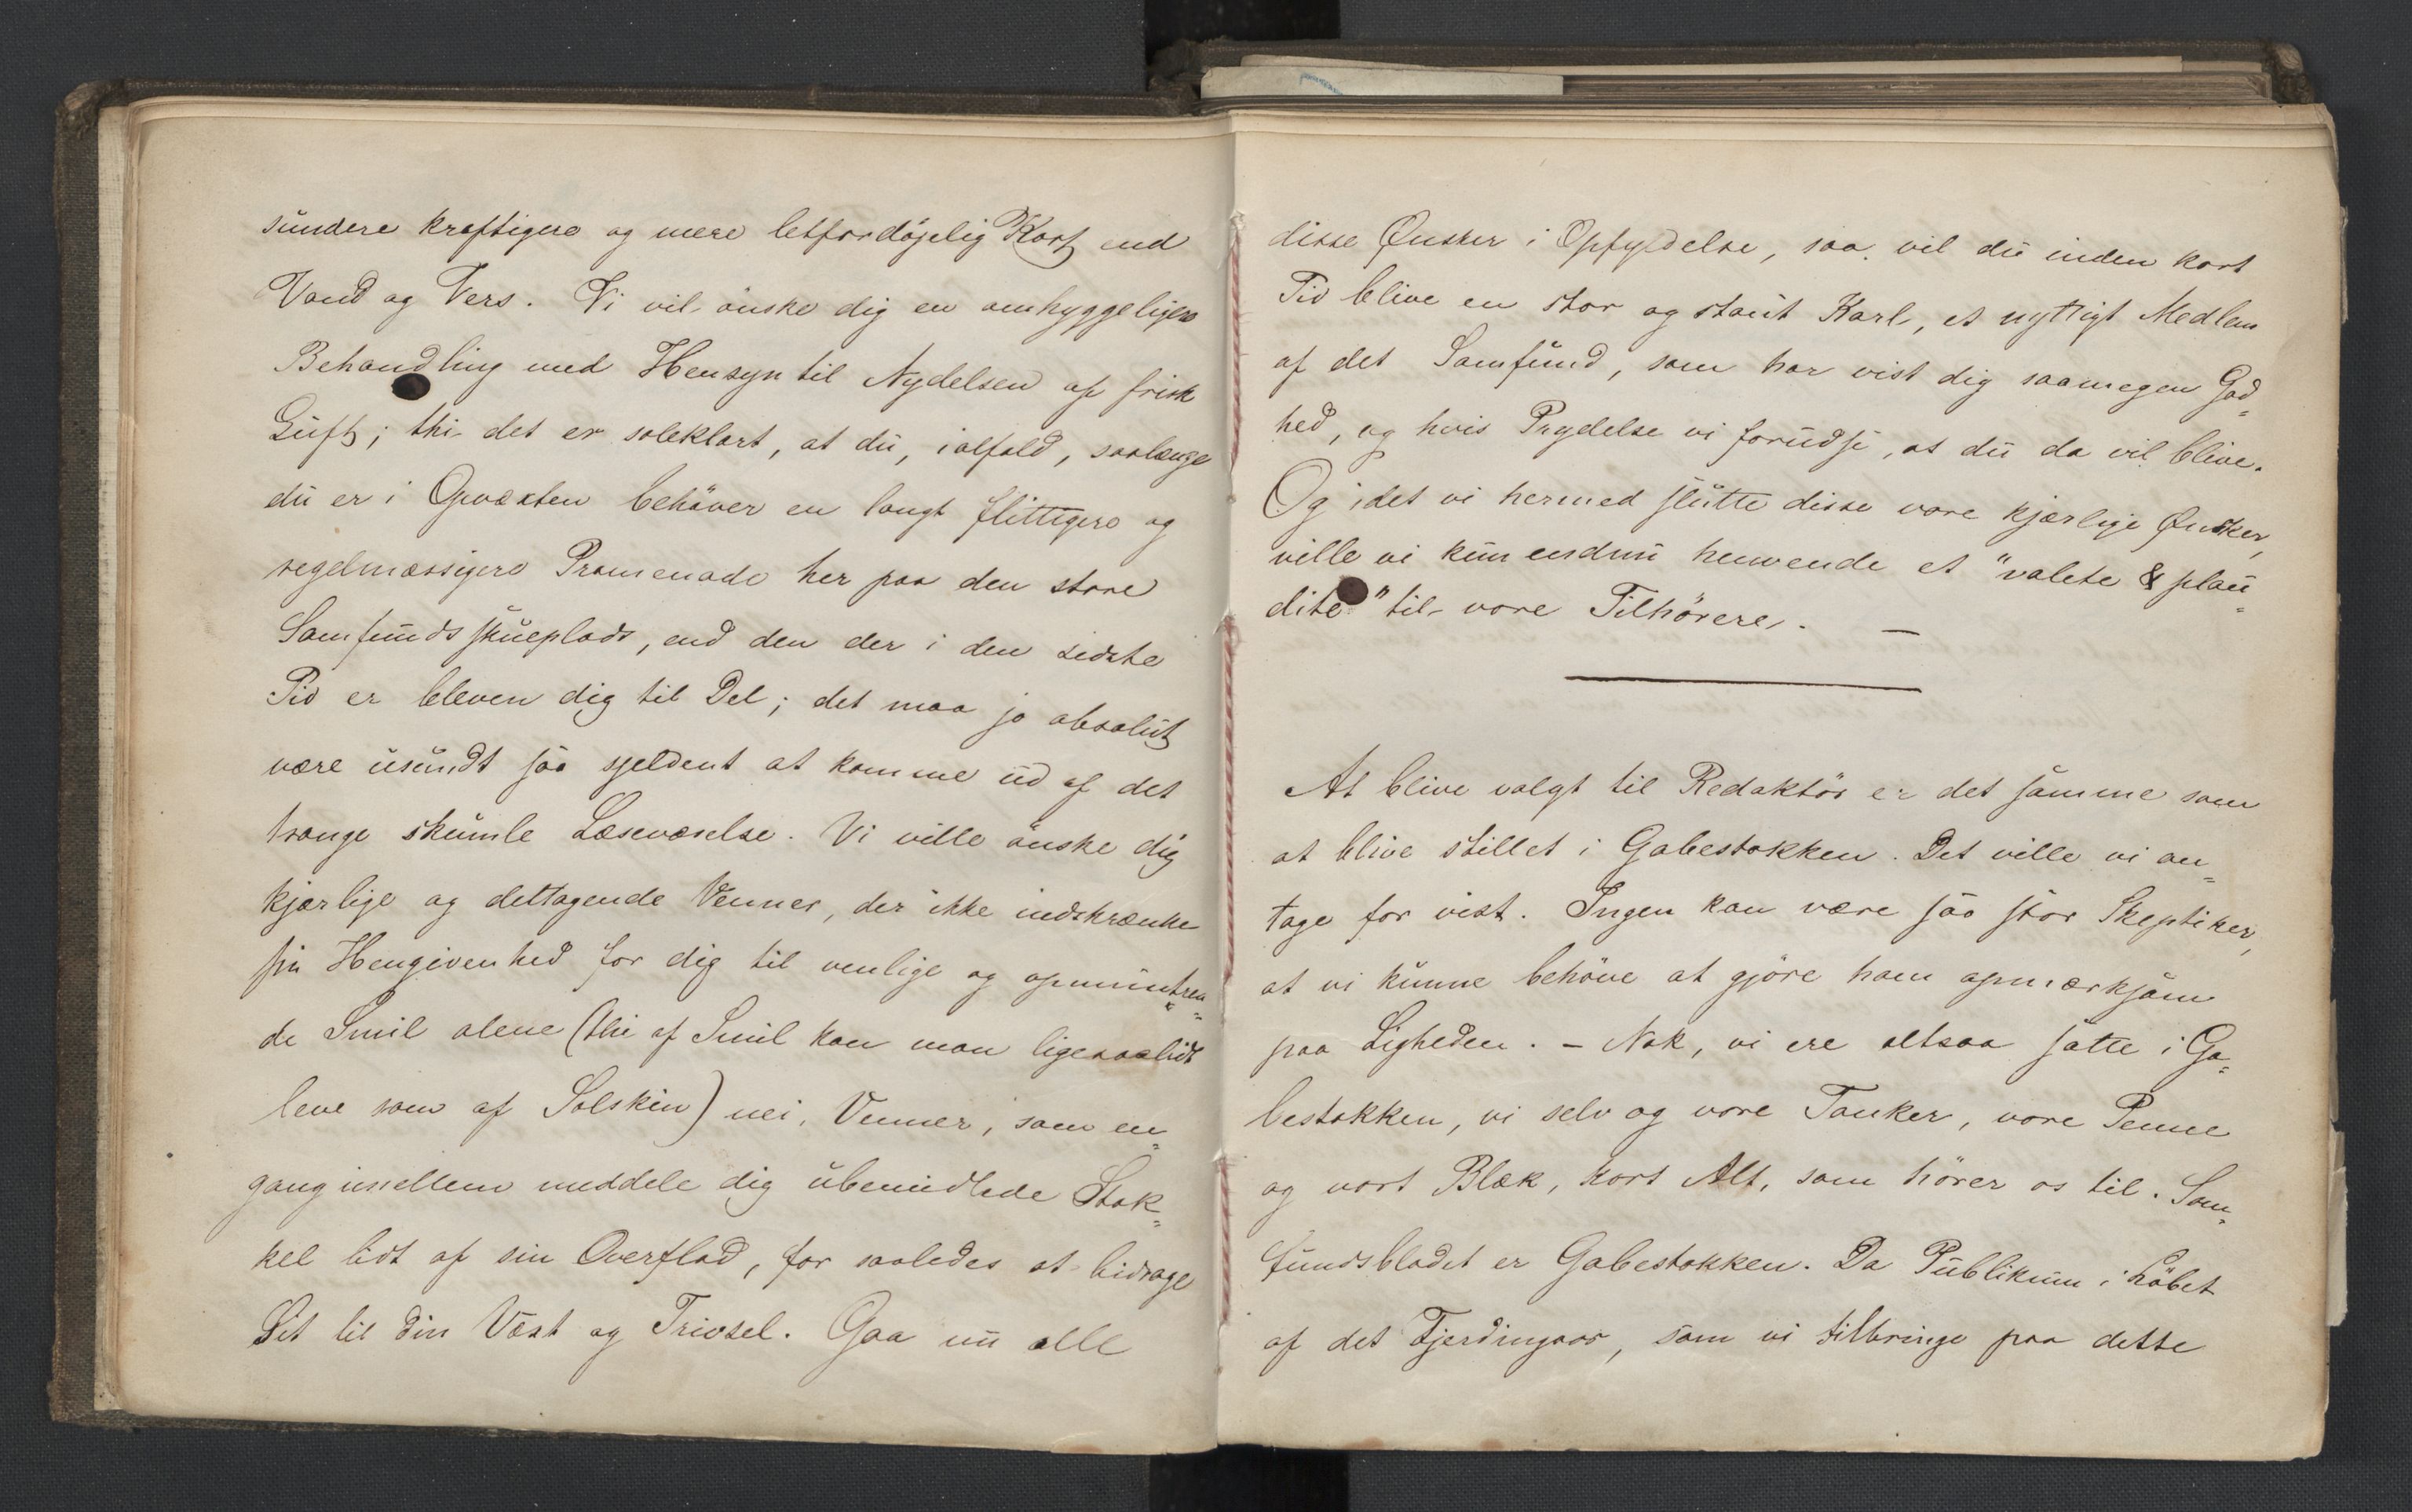 sundere kraftigere og mere letfordøjelig Kost end
Vand og Vers. Vi vil ønske dig en omhyggeligere
Behandling med Hensyn til Nydelsen af frisk
Luft; thi det er soleklart, at du, ialfald, saalænge
du er i Opvæxten behøver en langt flittigere og
regelmæssigere Promenade her paa den store
Samfundsskueplads, end den der i den sidste
Tid er bleven dig til Del; det maa jo absolut
være usundt saa sjeldent at komme ud af det
trange skumle Læseværelse. Vi ville ønske dig
kjærlige og deltagende Venner, der ikke indskrænke
sin Hengivenhed for dig til venlige og opmuntren-
de Smil alene (thi af Smil kan man ligesaalidt
leve som af Solskin) nei, Venner, som en-
gang imellem meddele dig ubemidlede Stak-
kel lidt af sin Overflod, for saaledes at bidrage
Sit til din Væxt og Trivsel. Gaa nu alle
disse Ønsker i Opfyldelse, saa vil du inden kort
Tid blive en stor og staut Karl, et nyttigt Medlem
af det Samfund, som har vist dig saamegen God-
hed, og hvis Prydelse vi forudse, at du da vil blive.
Og idet vi hermed slutte disse vore kjærlige Ønsker,
ville vi kun endnu henvende et "valete & plau-
dite" til vore Tilhørere. —
At blive valgt til Redaktør er det samme som
at blive stillet i Gabestokken. Det ville vi an-
tage for vist. Ingen kan være saa stor Skeptiker,
at vi kunne behøve at gjøre ham opmærksom
paa Ligheden. – Nok, vi ere altsaa satte i Ga-
bestokken, vi selv og vore Tanker, vore Penne
og vort Blæk, kort Alt, som hører os til. Sam-
fundsbladet er Gabestokken. Da Publikum i Løbet
af det Fjerdingaar, som vi tilbringe paa dette